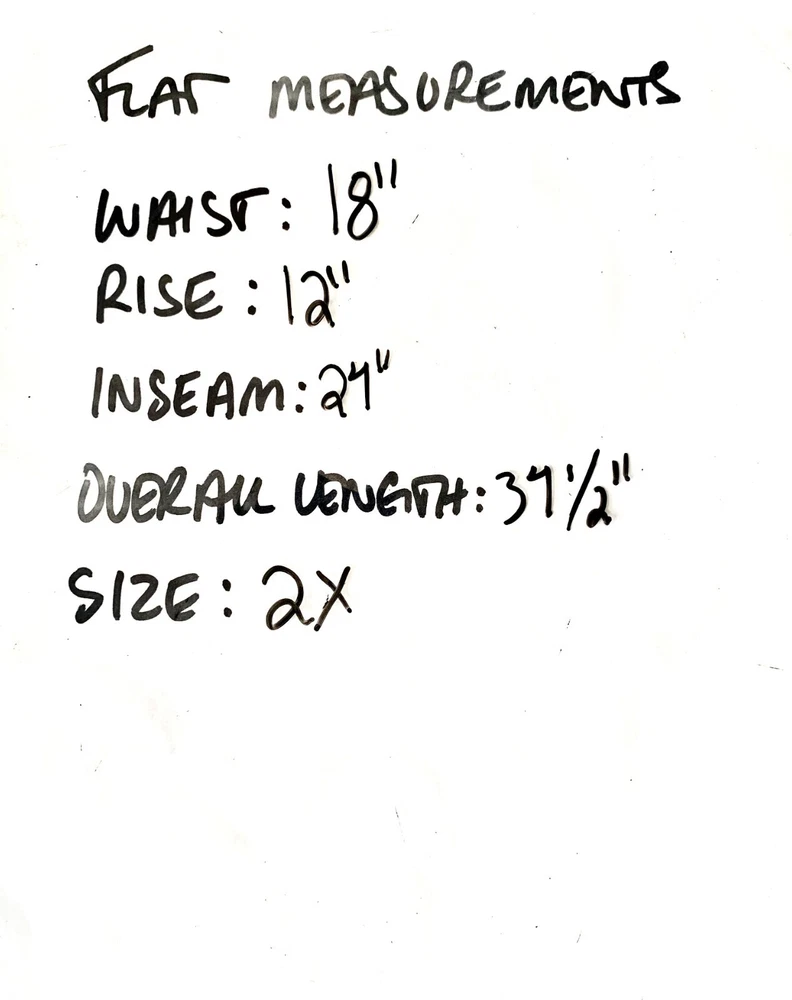 FLAT MEASUREMENTS
WAIST: 18"
RISE: 12"
INSEAM: 24"
OVERALL LENGTH: 34 1/2"
SIZE: 2X